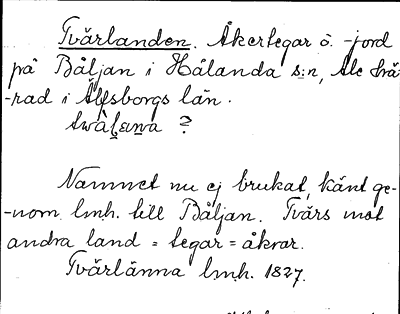 Tvärlanden. Åkertegar o. -jord
på Båljan i Hålanda s:n, Ale hä-
-rad i Älfsborgs län.
twàḷaṉa ?
Namnet nu ej brukat, känt ge-
-nom lmh. till Båljan. Tvärs mot
andra land = tegar = åkrar.
Tvärlänna lmh. 1827.